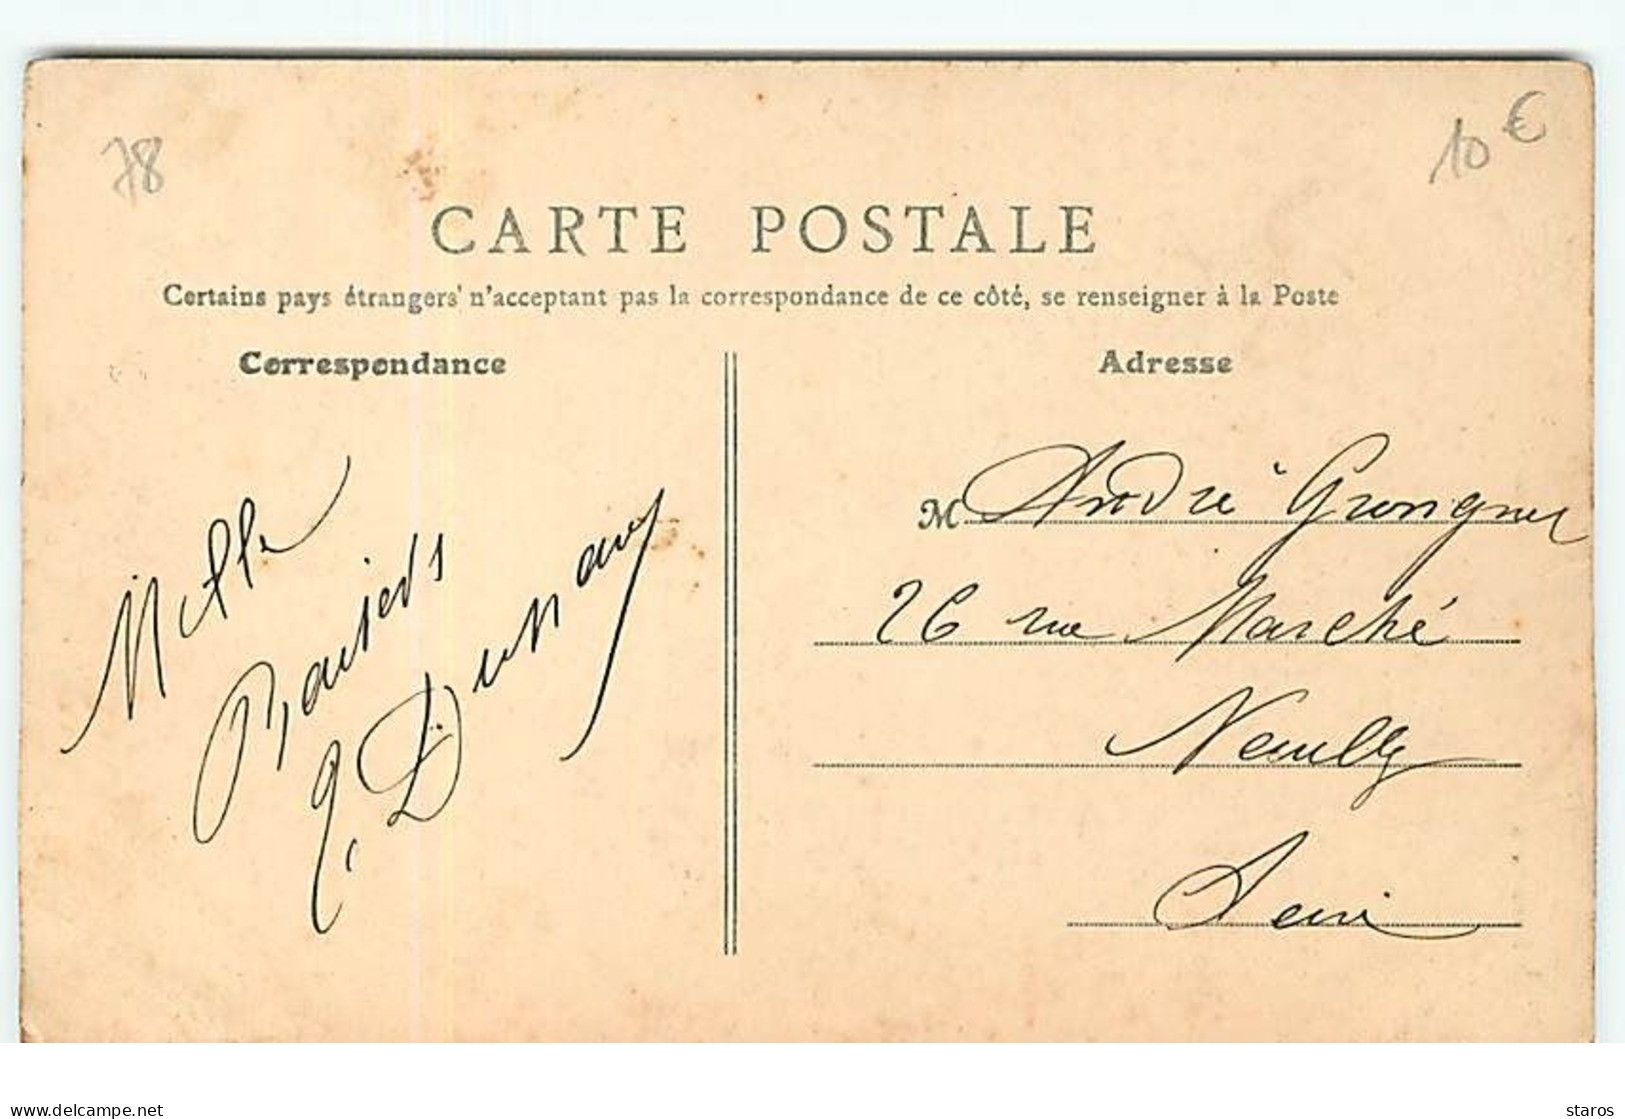 78
10 €
CARTE POSTALE
Certains pays étrangers n'acceptant pas la correspondance de ce côté, se renseigner à la Poste
Correspondance
Mille
Baisers
Adresse
M André
26 rue Marché
Neuilly
Seine
delcampe.net
staros